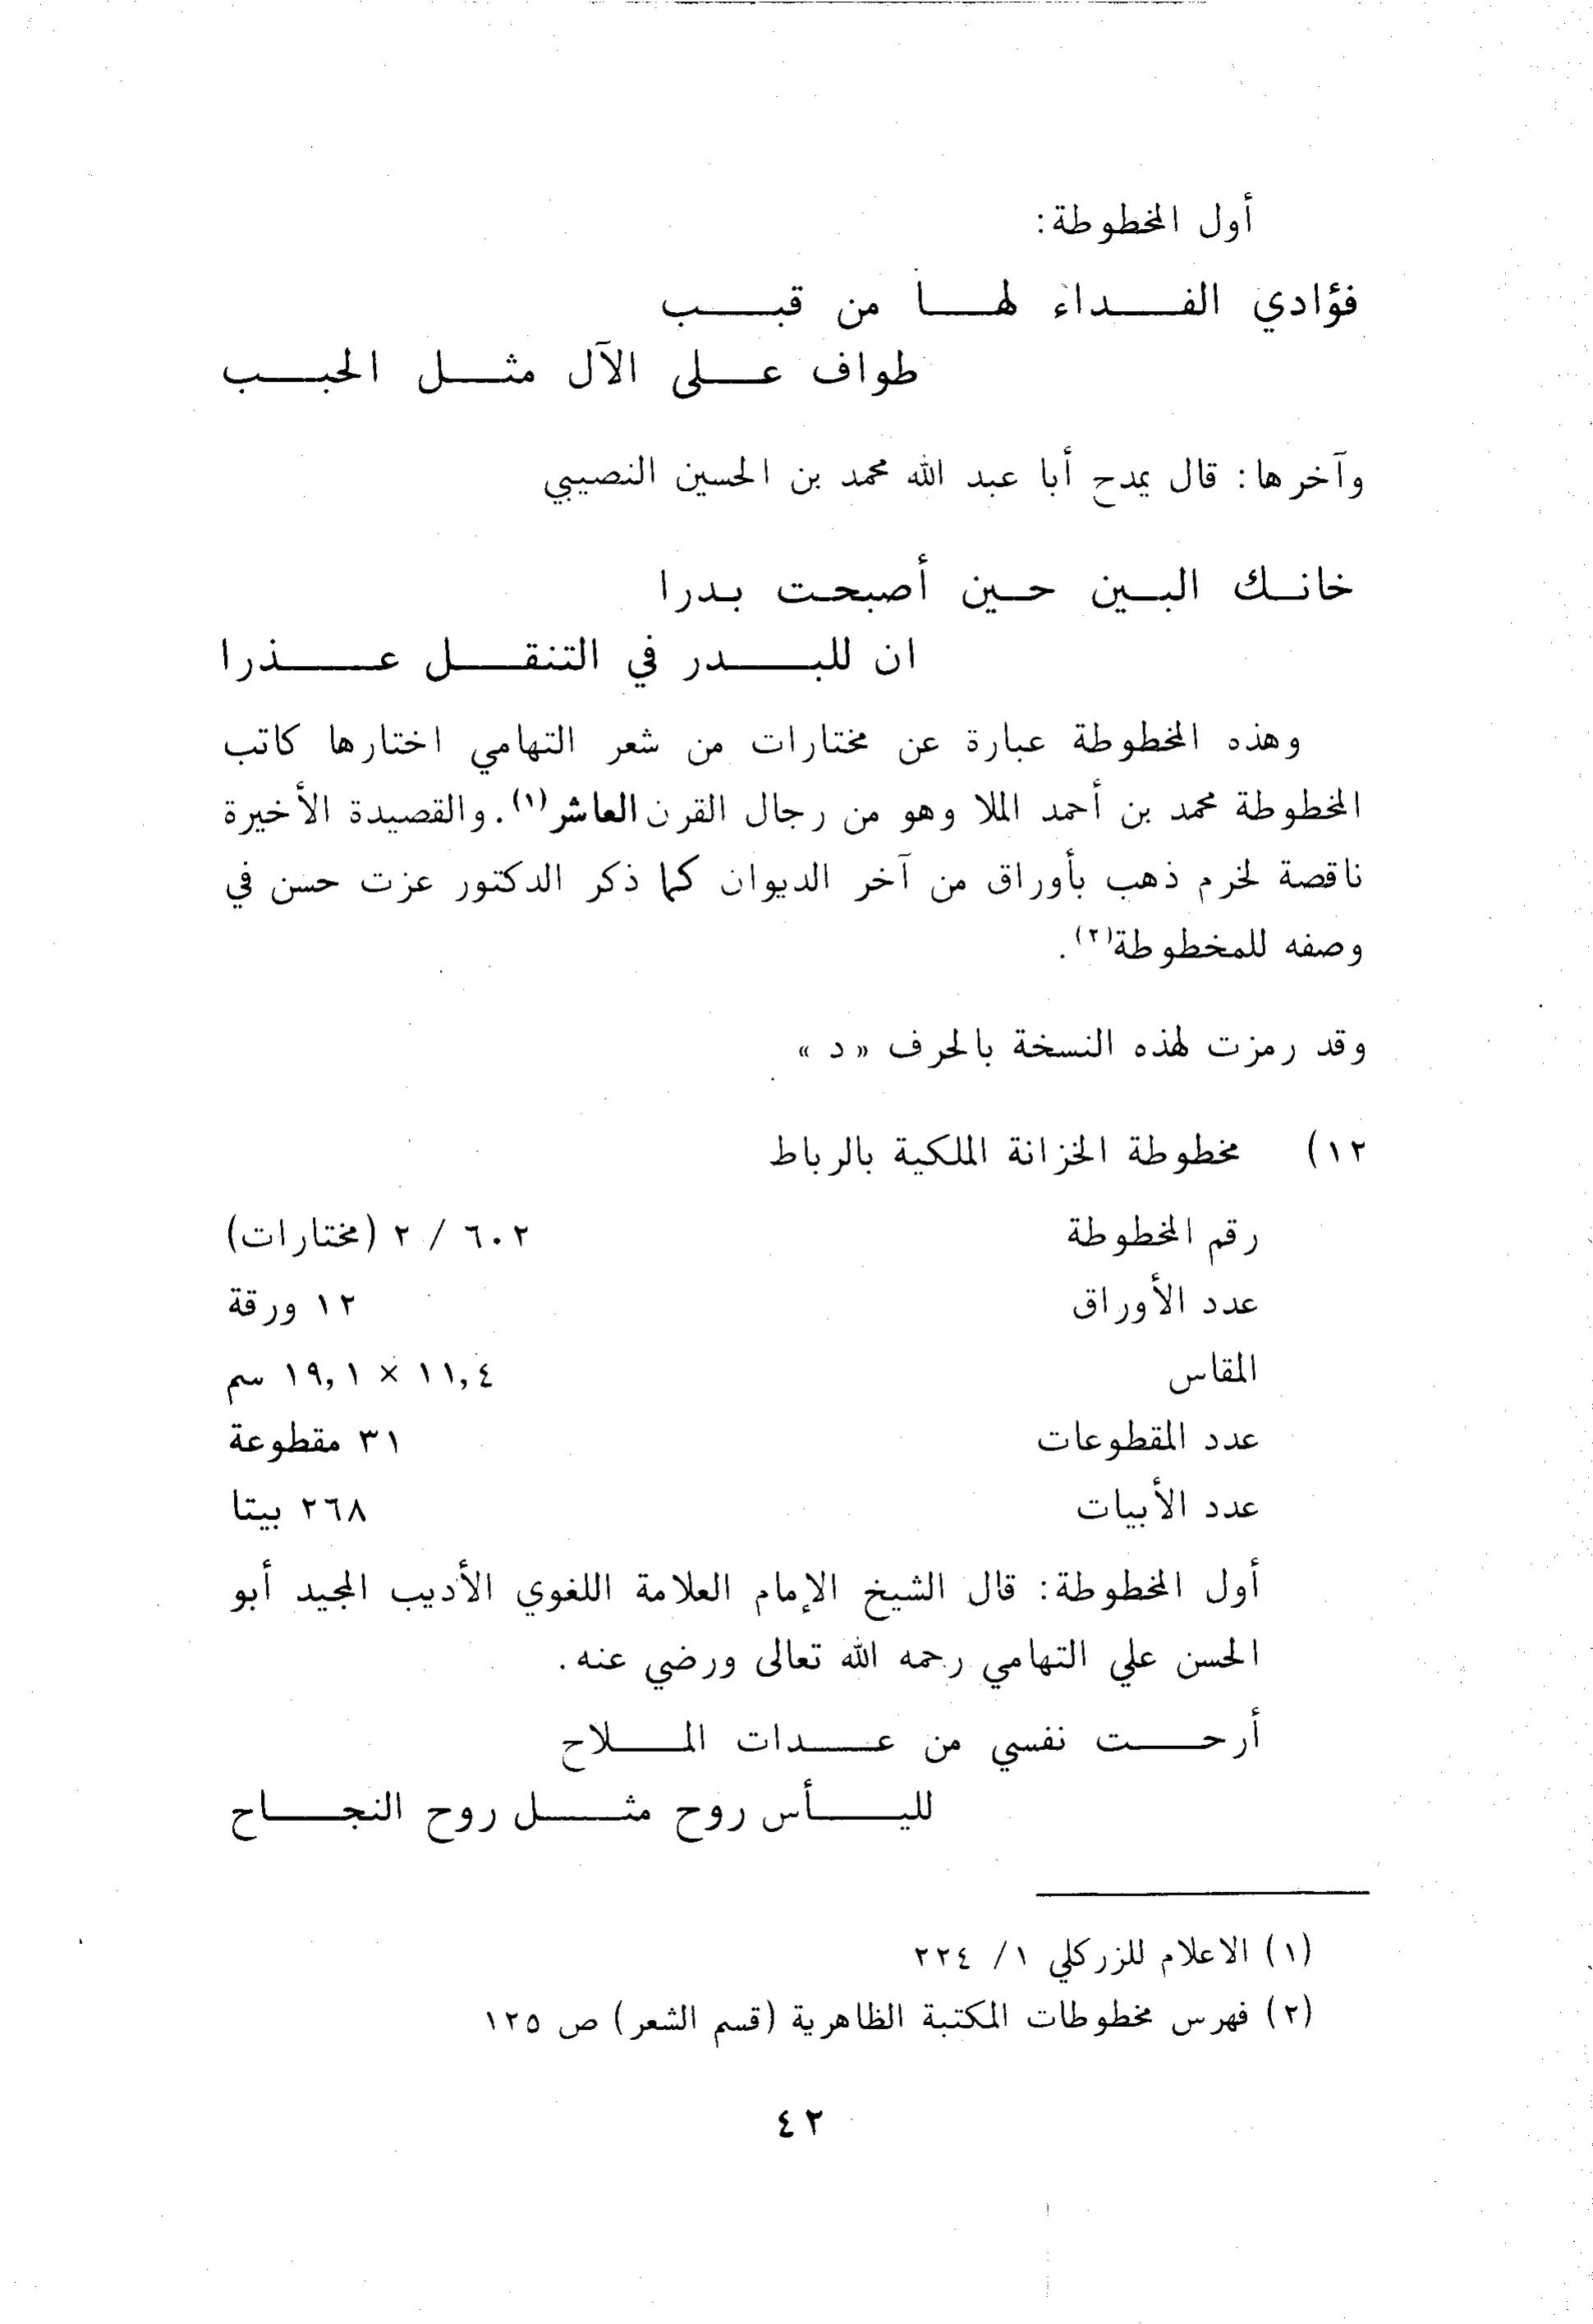 أول المخطوطة:
فؤادي الفداء لها من قبب
طواف على الآل مثل الحبب
وآخرها: قال يمدح أبا عبد الله محمد بن الحسين النصيبي
خانك البين حين أصبحت بدرا
ان للبدر في التنقل عذرا
وهذه المخطوطة عبارة عن مختارات من شعر التهامي اختارها كاتب
المخطوطة محمد بن أحمد الملا وهو من رجال القرن العاشر(١). والقصيدة الأخيرة
ناقصة لخرم ذهب بأوراق من آخر الديوان كما ذكر الدكتور عزت حسن في
وصفه للمخطوطة(٢).
وقد رمزت لهذه النسخة بالحرف « د »
١٢) مخطوطة الخزانة الملكية بالرباط
رقم المخطوطة ٦٠٢ / ٢ (مختارات)
عدد الأوراق ١٢ ورقة
المقاس ١١,٤ × ١٩,١ سم
عدد المقطوعات ٣١ مقطوعة
عدد الأبيات ٢٦٨ بيتا
أول المخطوطة: قال الشيخ الإمام العلامة اللغوي الأديب المجيد أبو
الحسن علي التهامي رحمه الله تعالى ورضي عنه.
أرحت نفسي من عدات الملاح
لليأس روح مثل روح النجاح
(١) الاعلام للزركلي ١/ ٢٢٤
(٢) فهرس مخطوطات المكتبة الظاهرية (قسم الشعر) ص ١٢٥
٤٢